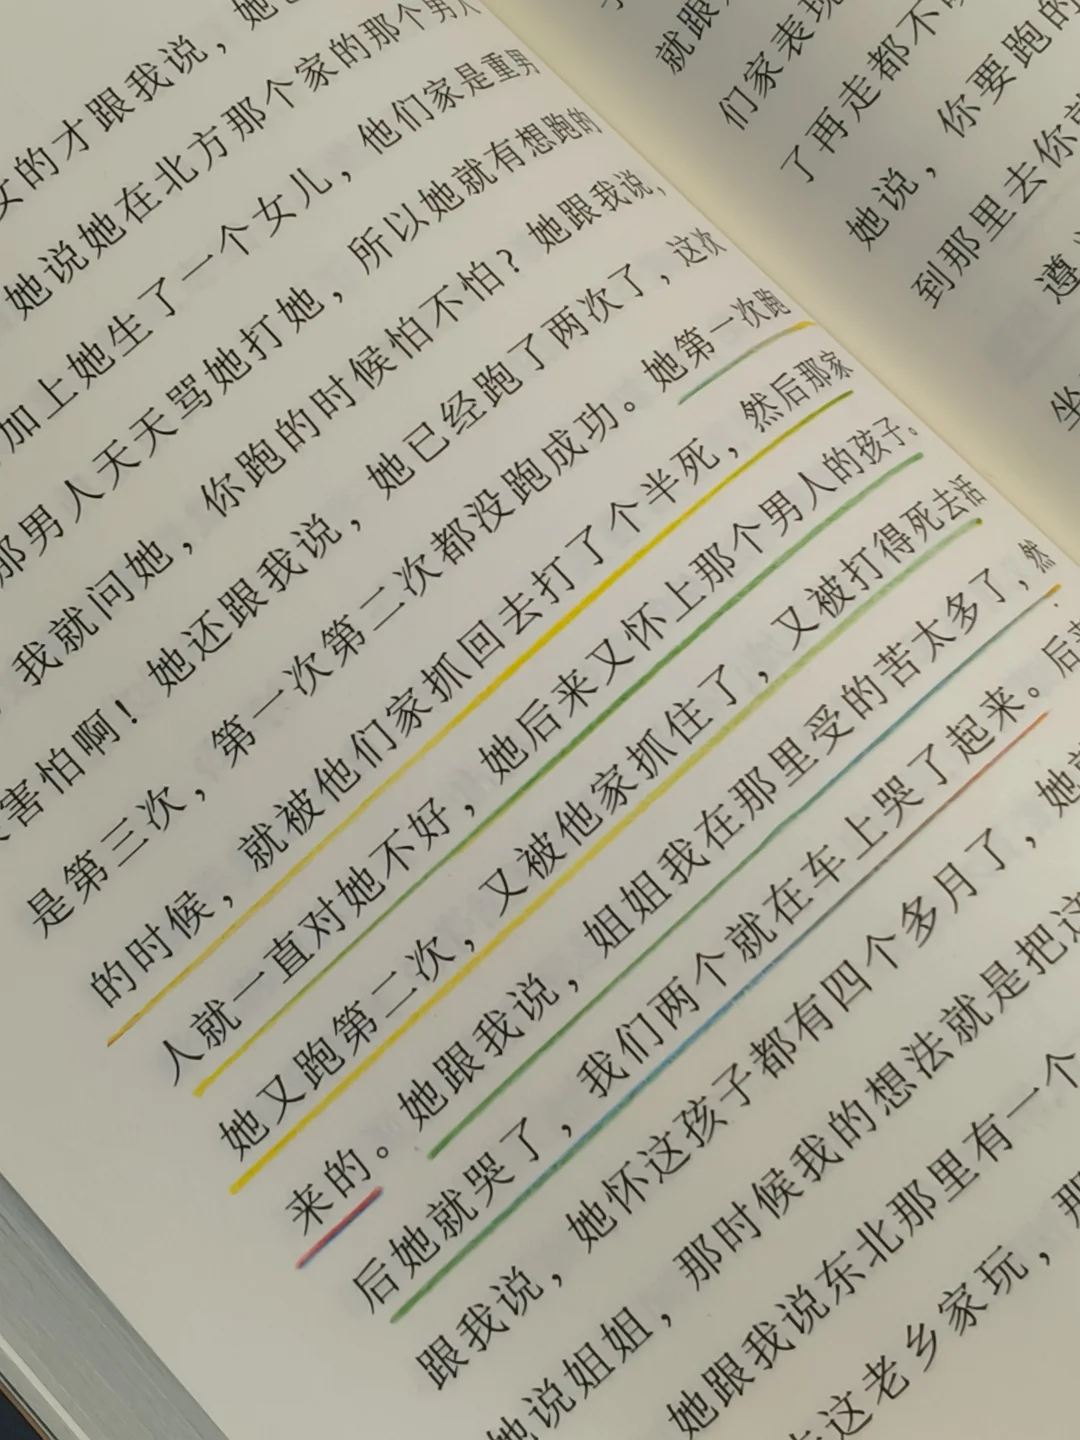 女的才跟我说，她
她说她在北方那个家的那个男人
加上她生了一个女儿，他们家是重男
那男人天天骂她打她，所以她就有想跑的
我就问她，你跑的时候怕不怕？她跟我说，
害怕啊！她还跟我说，她已经跑了两次了，这次
是第三次，第一次第二次都没跑成功。她第一次跑
的时候，就被他们家抓回去打了个半死，然后那家
人就一直对她不好，她后来又怀上那个男人的孩子。
她又跑第二次，又被他家抓住了，又被打得死去活
来的。她跟我说，姐姐我在那里受的苦太多了，然
后她就哭了，我们两个就在车上哭了起来。后来
跟我说，她怀这孩子都有四个多月了，她就
她说姐姐，那时候我的想法就是把这
她跟我说东北那里有一个
去这老乡家玩，那
就跟
们家表现
了再走都不
她说，你要跑的
到那里去你就
遵
坐